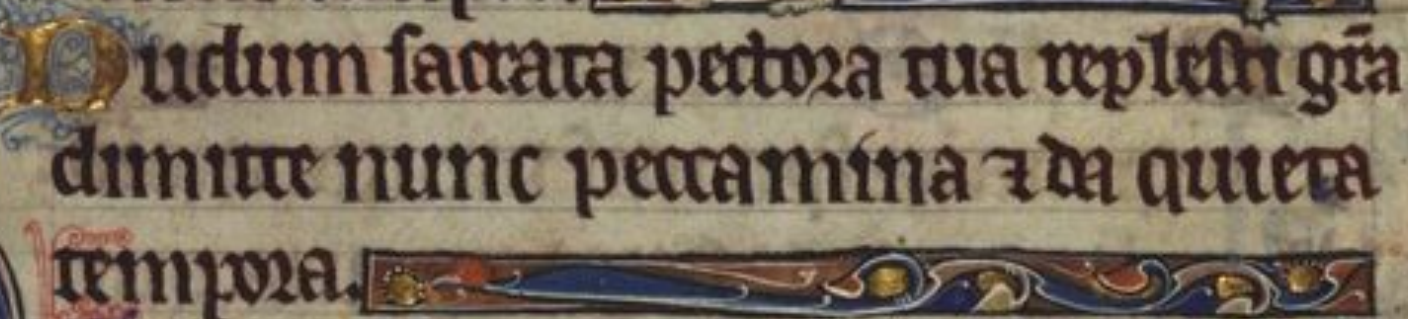 Dudum sacrata pectora tua replesti gr̃a
dimitte nunc peccamina ⁊ da quieta
tempora.